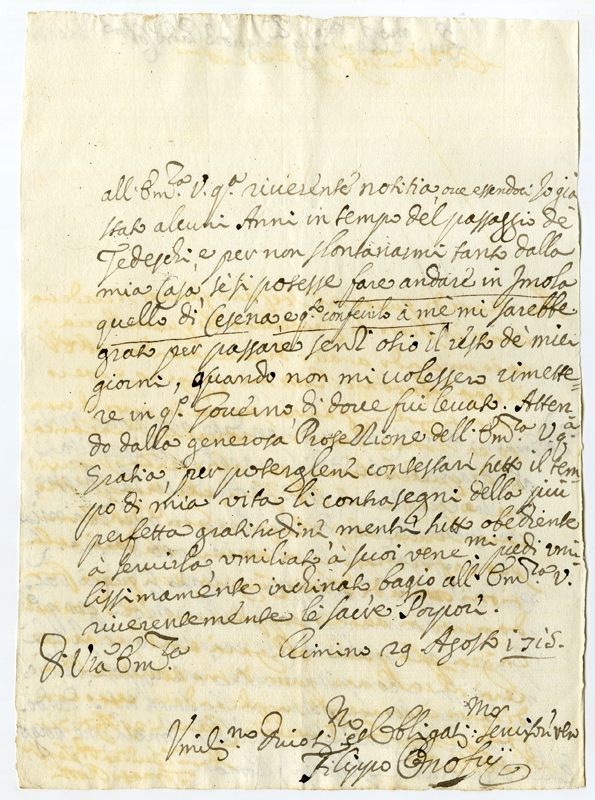 all'Em.za V. q.ta riverente notitia, ove essendoci Io già
stato alcuni Anni in tempo del passaggio de
Tedeschi e per non slontanarmi tanto dalla
mia Casa, se si potesse fare andare in Imola
quello di Cesena e q.to conferirlo à me mi sarebbe
grato per passare senz'otio il resto de miei
giorni, quando non mi volessero rimette=
re in q.to Governo di dove fui levato. Atten
do dalla generosa Protettione dell'Em.za V. q.ta
Gratia, per potergleni contestare tutto il tem
po di mia vita li contrasegni della più
perfetta gratitudine mentre tutto obediente
à servirla umiliato à suoi vene.mi piedi umi
lissimamente inchinato bagio all'Em.za V.
riverentemente le sacre Porpore.
Di V̄ra Em.za
Rimino 29 Agosto 1715.
Umilis.mo Divotis.mo et Obligatis.mo Servitor vero
Filippo